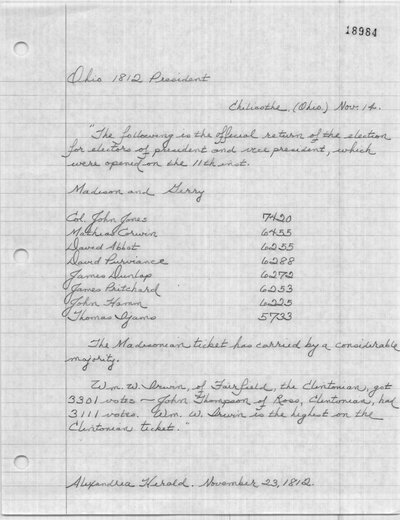 18984
Ohio 1812 President
Chilicothe, (Ohio) Nov. 14.
"The following is the official return of the election
for electors of president and vice president, which
were opened on the 11th inst.
Madison and Gerry
Col. John Jones 7420
Mathias Corwin 6455
David Abbot 6255
David Purviance 6288
James Dunlap 6272
James Pritchard 6253
John Hamm 6225
Thomas Ijams 5733
The Madisonian ticket has carried by a considerable
majority.
Wm. W. Irwin, of Fairfield, the Clintonian, got
3301 votes — John Thompson of Ross, Clintonian, had
3111 votes. Wm. W. Irwin is the highest on the
Clintonian ticket."
Alexandria Herald. November 23, 1812.